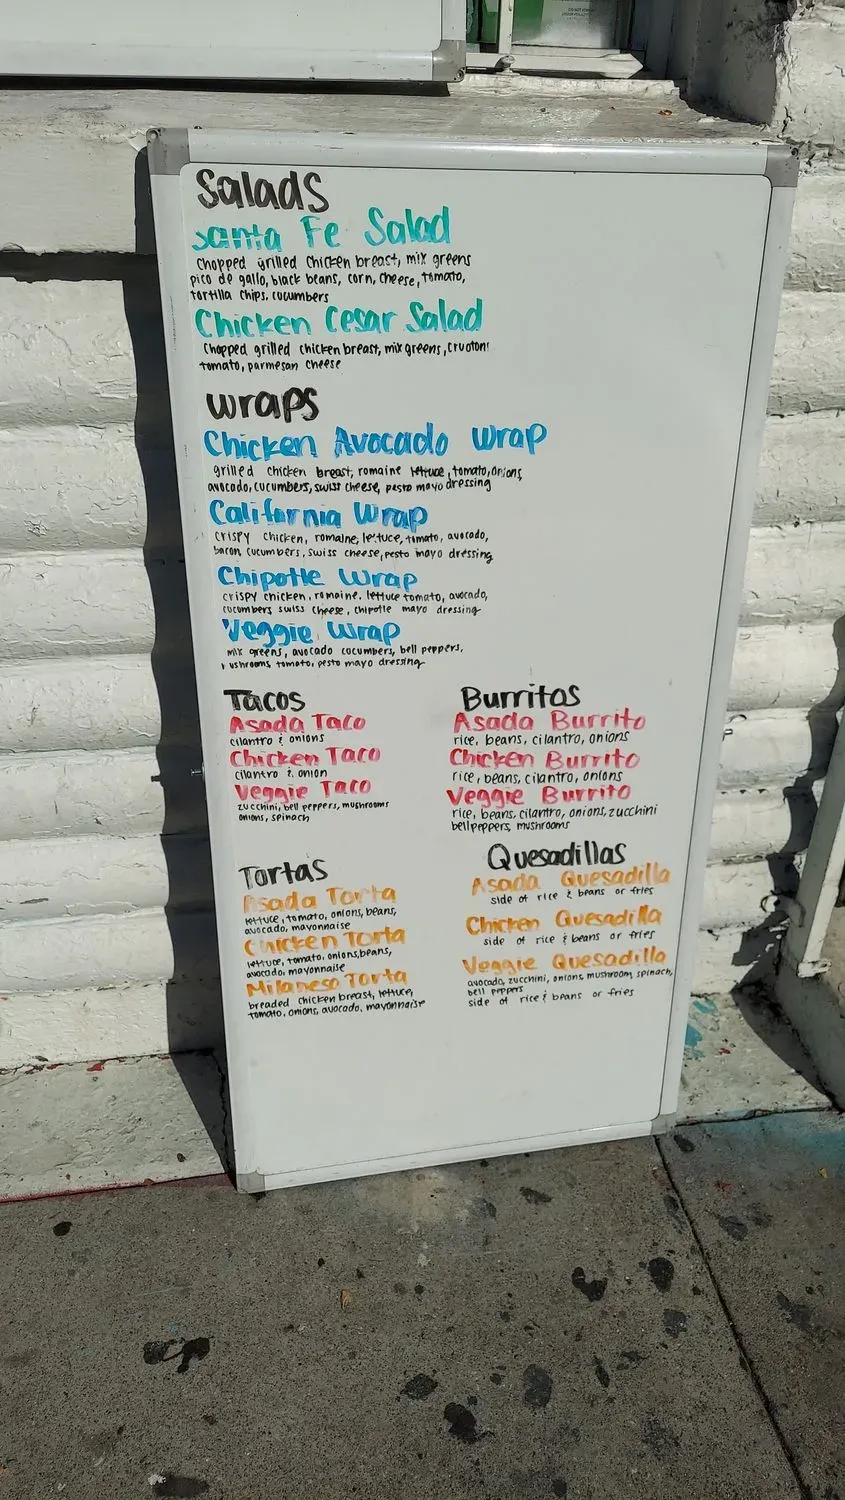 Salads
Santa Fe Salad
Chopped grilled chicken breast, mix greens
pico de gallo, black beans, corn, cheese, tomato,
tortilla chips, cucumbers
Chicken Cesar Salad
Chopped grilled chicken breast, mix greens, cruoton
tomato, parmesan cheese
wraps
Chicken Avocado Wrap
grilled chicken breast, romaine lettuce, tomato, onions,
avocado, cucumbers, swiss cheese, pesto mayo dressing
California Wrap
crispy chicken, romaine, lettuce, tomato, avocado,
bacon cucumbers, swiss cheese, pesto mayo dressing
Chipotle Wrap
crispy chicken, romaine, lettuce tomato, avocado,
cucumbers swiss cheese, chipotle mayo dressing
Veggie Wrap
mix greens, avocado cucumbers, bell peppers,
mushrooms, tomato, pesto mayo dressing
Tacos
Asada Taco
cilantro & onions
Chicken Taco
cilantro & onion
Veggie Taco
zucchini, bell peppers, mushrooms
onions, spinach
Burritos
Asada Burrito
rice, beans, cilantro, onions
Chicken Burrito
rice, beans, cilantro, onions
Veggie Burrito
rice, beans, cilantro, onions, zucchini
bellpeppers, mushrooms
Tortas
Asada Torta
lettuce, tomato, onions, beans,
avocado, mayonnaise
Chicken Torta
lettuce, tomato, onions, beans,
avocado, mayonnaise
Milanesa Torta
breaded chicken breast, lettuce,
tomato, onions, avocado, mayonnaise
Quesadillas
Asada Quesadilla
side of rice & beans or fries
Chicken Quesadilla
side of rice & beans or fries
Veggie Quesadilla
avocado, zucchini, onions, mushroom, spinach,
bell peppers
side of rice & beans or fries